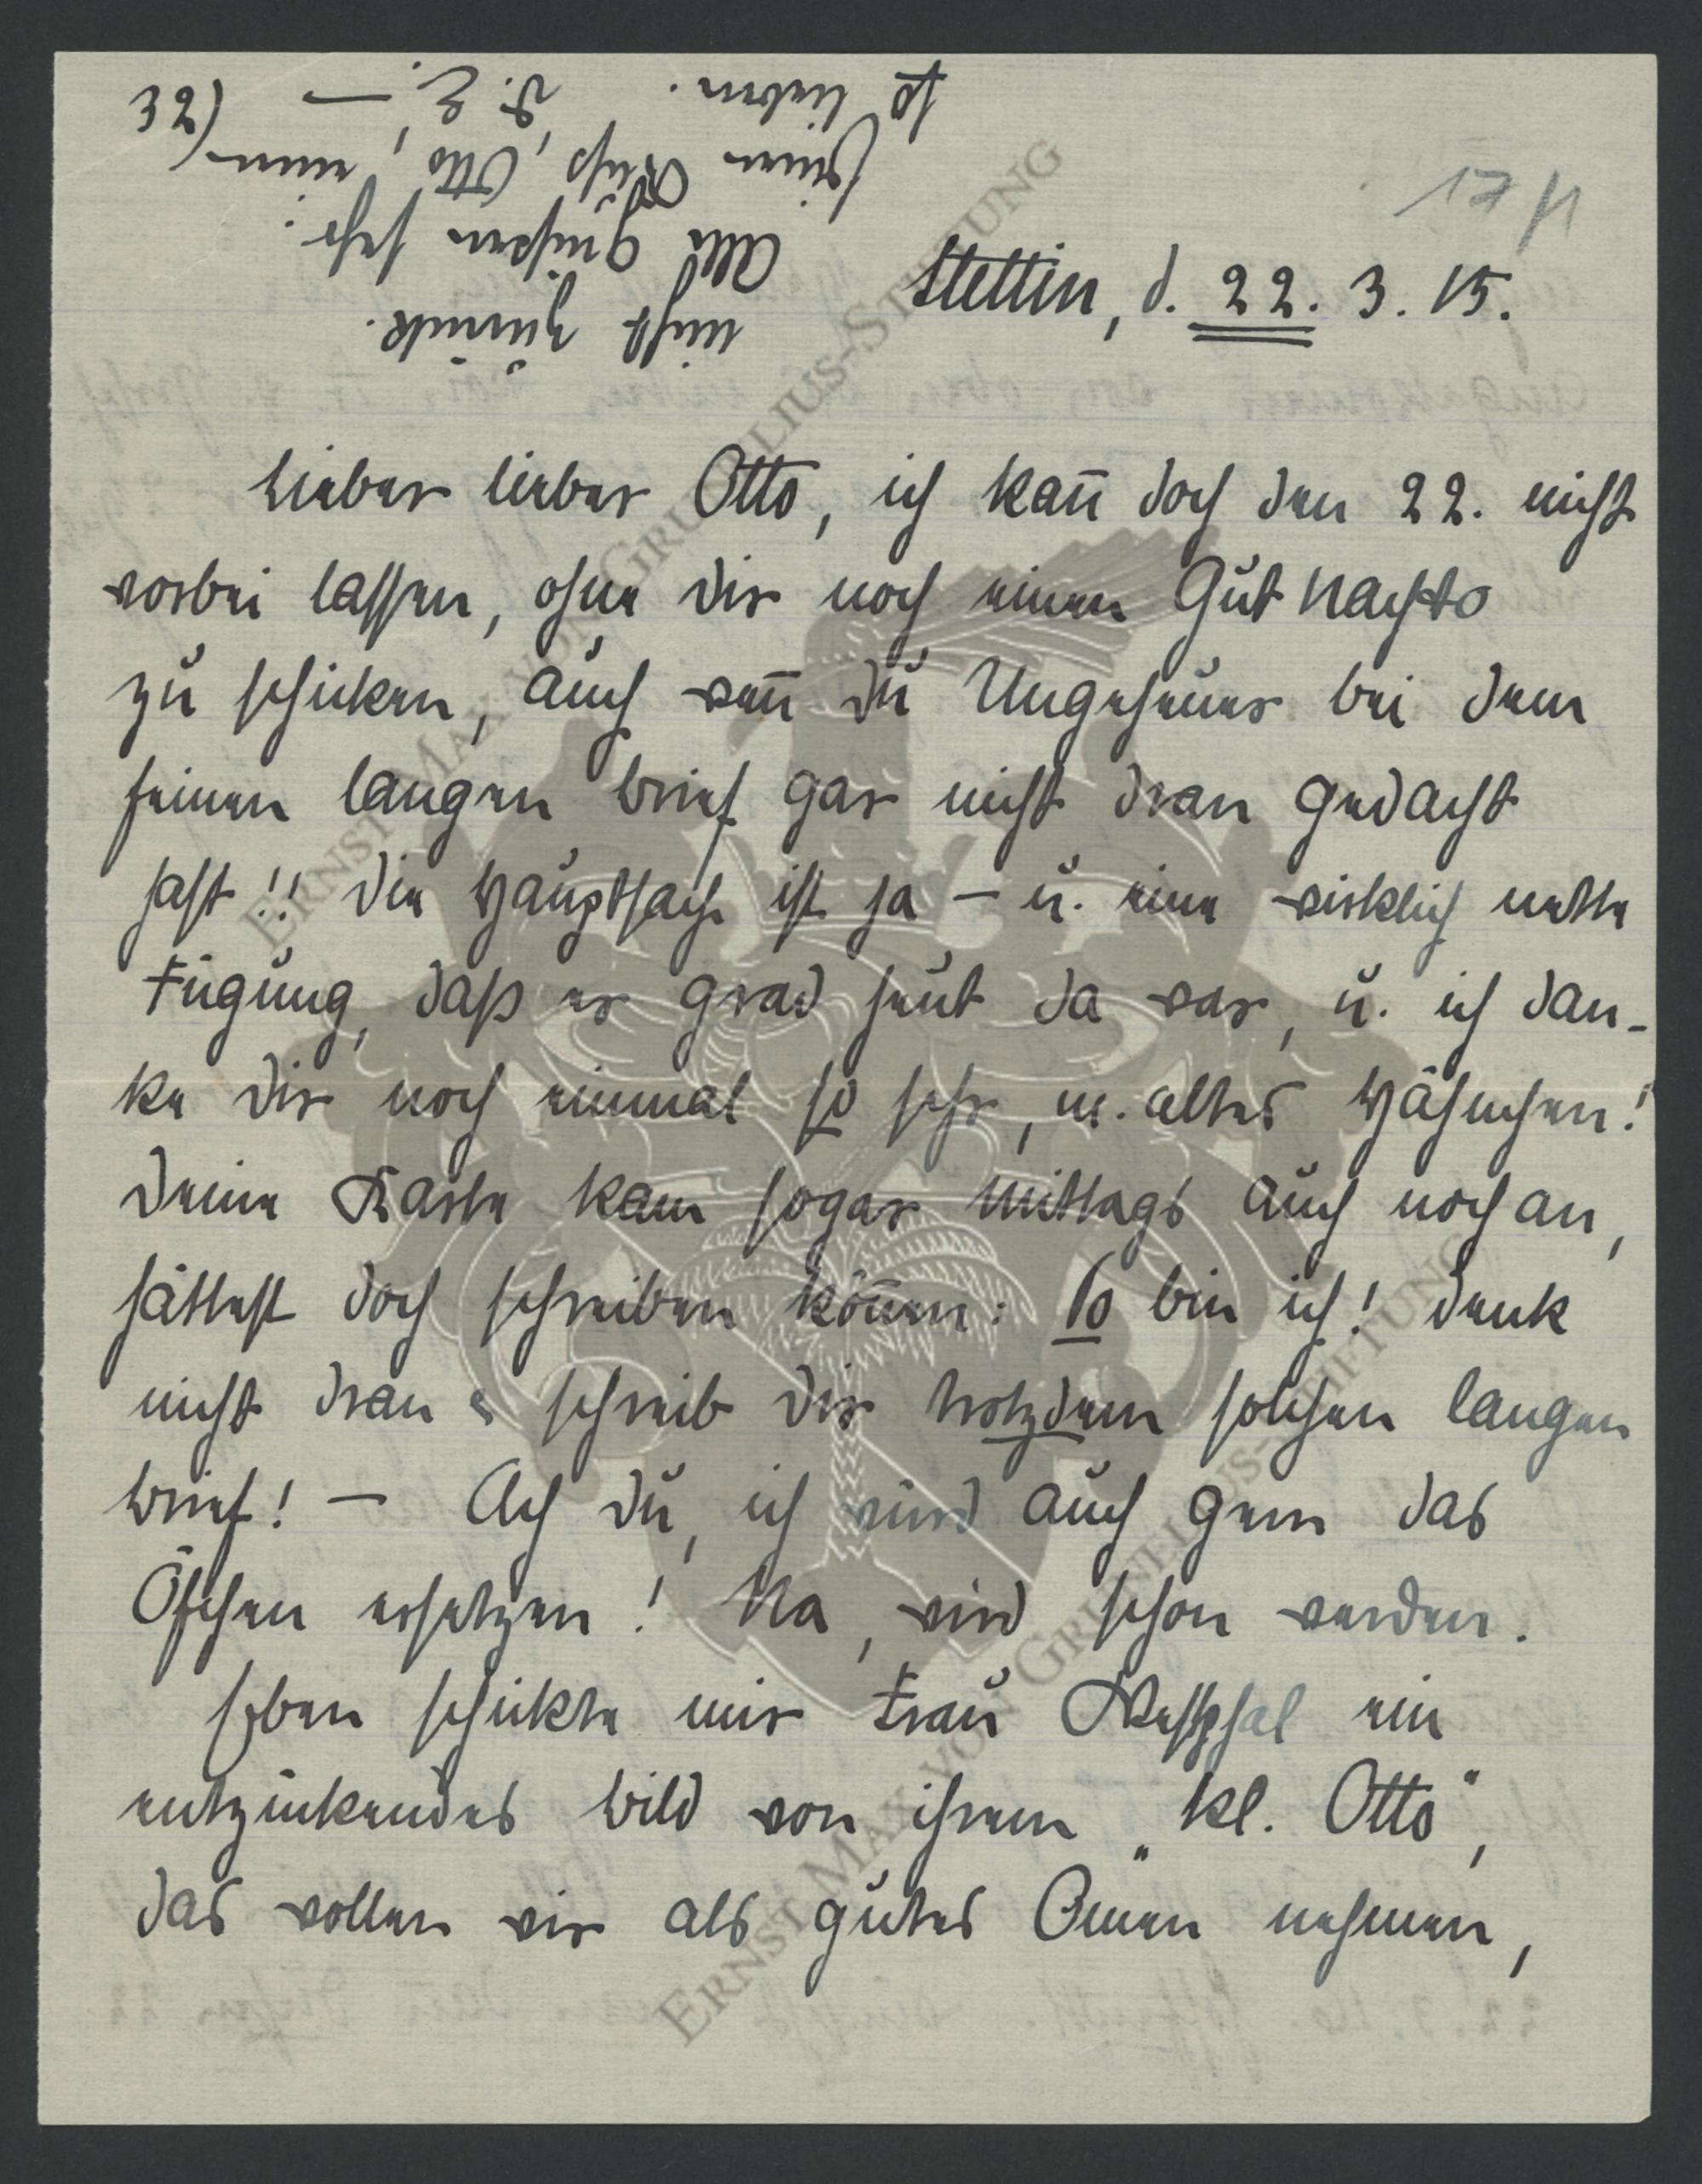 17/1
Stettin, d. 22. 3. 15.
Lieber lieber Otto, ich kan̄ doch den 22. nicht
vorbei lassen, ohne dir noch einen Gut Nachtko
zu schicken, auch wen̄ du Ungeheuer bei dem
feinen langen Brief gar nicht dran gedacht
hast!! Die Hauptsach ist ja – u. eine wirklich nette
Fügung, daß er grad heut da war, u. ich dan-
ke dir noch einmal so sehr, m. altes Hähnchen!
Deine Karte kam sogar Mittags auch noch an,
hättest doch schreiben kön̄en: So bin ich! Denk
nicht dran & schreib dir trotzdem solchen langen
Brief! – Ach du, ich würd auch gern das
Öfchen ersetzen! Na, wird schon werden.
Eben schickte mir Frau Westphal ein
entzückendes Bild von ihrem „kl. Otto",
das wollen wir als gutes Omen nehmen,
nicht zurück.
Alle Grüßen sehr.
Einen Kuß, Otto, einen
so lieben. D. E. –
(32
ERNST MAX VON GRUNELIUS-STIFTUNG
ERNST MAX VON GRUNELIUS-STIFTUNG